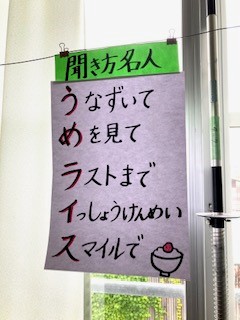 聞き方名人
うなずいて
めを見て
ラストまで
いっしょうけんめい
スマイルで